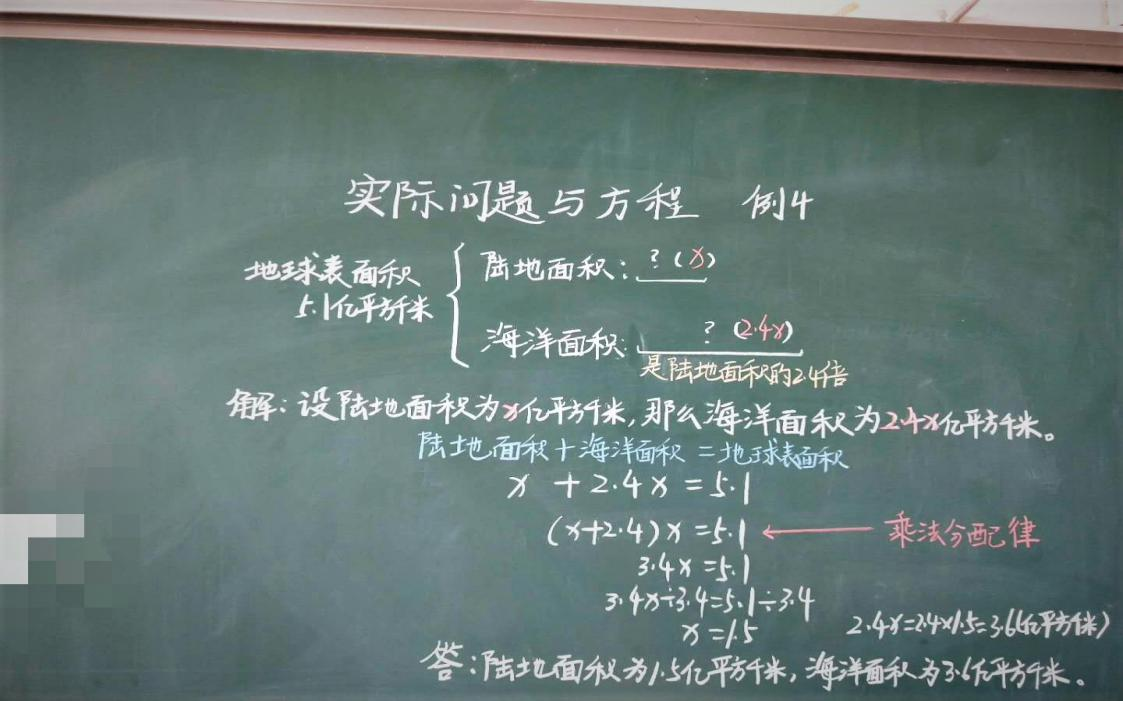 实际问题与方程 例4
地球表面积
5.1亿平方千米
陆地面积：?(x)
海洋面积：?(2.4x)
是陆地面积的2.4倍
解：设陆地面积为x亿平方千米，那么海洋面积为2.4x亿平方千米。
陆地面积+海洋面积=地球表面积
x+2.4x=5.1
(x+2.4)x=5.1 ← 乘法分配律
3.4x=5.1
3.4x÷3.4=5.1÷3.4
x=1.5
2.4x=2.4×1.5=3.6(亿平方千米)
答：陆地面积为1.5亿平方千米，海洋面积为3.6亿平方千米。